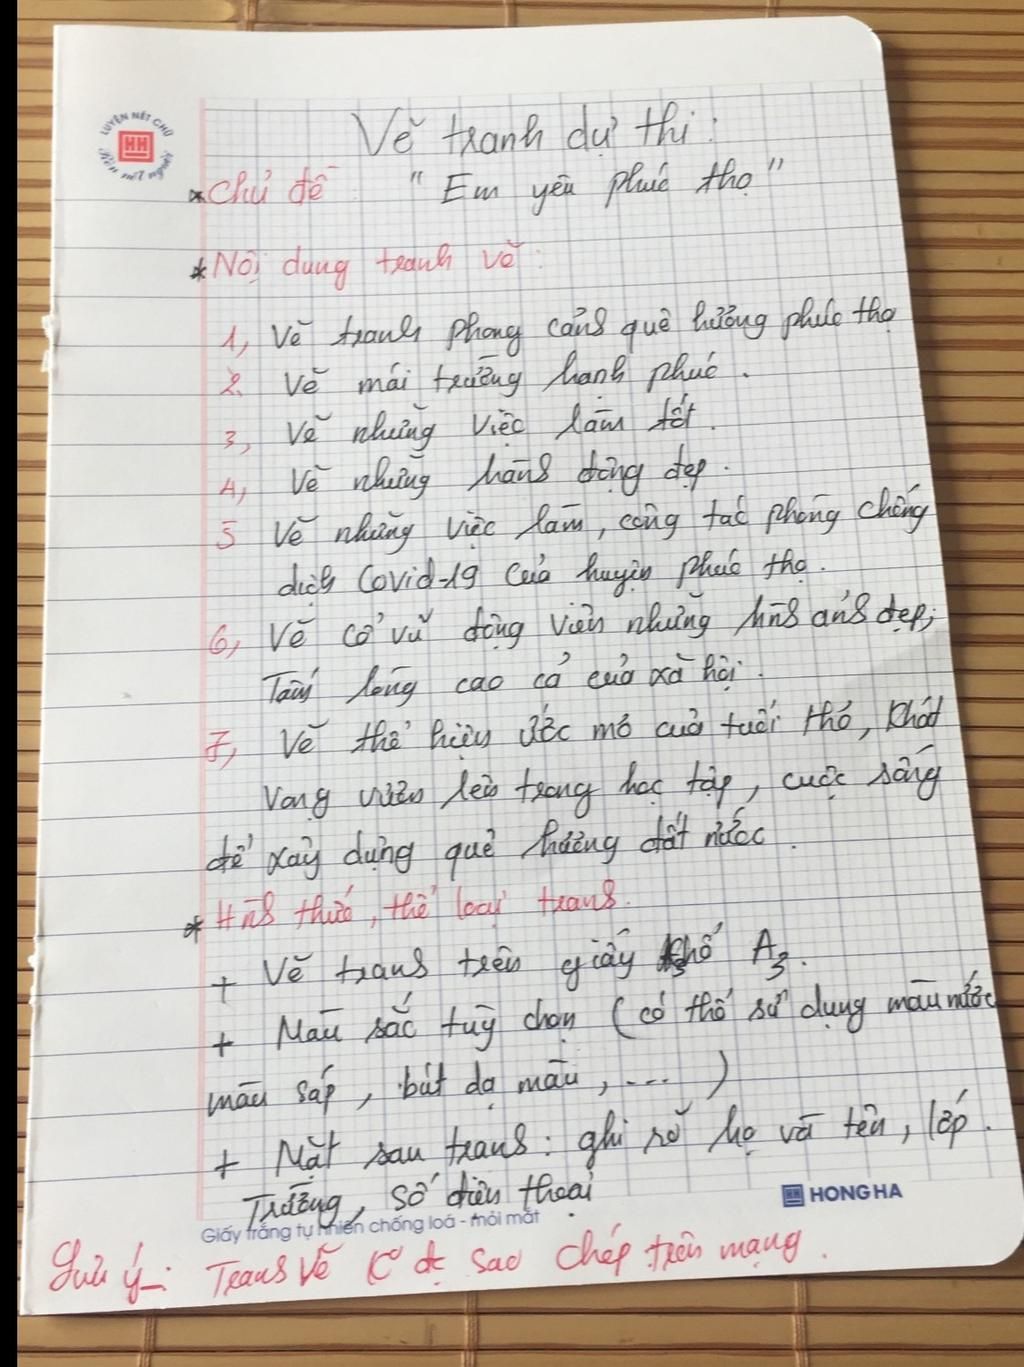 LUYỆN NÉT CHỮ
Rèn nết người
HH
Vẽ tranh dự thi:
* Chủ đề: "Em yêu phúc thọ"
* Nội dung tranh vẽ:
1, Vẽ tranh phong cảnh quê hương phúc thọ
2. Vẽ mái trường hạnh phúc.
3, Vẽ những việc làm tốt.
4, Vẽ những hành động đẹp.
5 Vẽ những việc làm, công tác phòng chống
dịch Covid-19 của huyện phúc thọ.
6, Vẽ cổ vũ động viên những hình ảnh đẹp;
Tấm lòng cao cả của xã hội.
7, Vẽ thể hiện ước mơ của tuổi thơ, khát
vọng vươn lên trong học tập, cuộc sống
để xây dựng quê hương đất nước.
* Hình thức, thể loại tranh.
+ Vẽ tranh trên giấy khổ A3.
+ Màu sắc tuỳ chọn (có thể sử dụng màu nước
màu sáp, bút dạ màu, ...)
+ Mặt sau tranh: ghi rõ họ và tên, lớp.
Trường, số điện thoại
HH HONG HA
Giấy trắng tự nhiên chống loá - mỏi mắt
Lưu ý: Tranh vẽ K đc sao chép trên mạng.